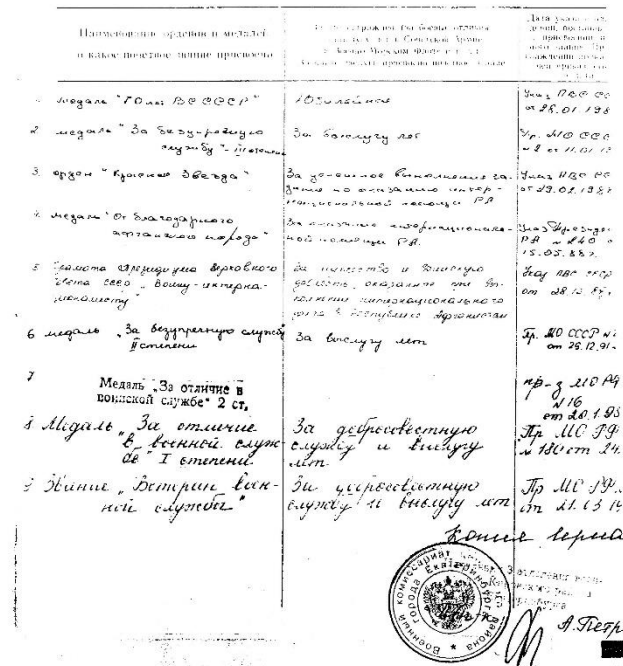 Наименование орденов и медалей
и какое почетное звание присвоено
1 медаль "70 лет ВС СССР"
Юбилейная
Указ ПВС СС
от 28.01.198
2 медаль "За безупречную
службу" - III степени
За выслугу лет
Пр. МО ССС
3. орден "Красная Звезда"
За успешное выполнение за-
дания по оказанию интер-
национальной помощи РА
Указ ПВС СС
4. медаль "От благодарного
афганского народа"
За оказание интернациональ-
ной помощи РА.
Указ Президе
РА № 240 о
15.05.88г.
5 Грамота Президиума Верховного
Совета СССР "Воину-интерна-
ционалисту"
За мужество и воинскую
доблесть, оказанные при вы-
полнении интернационального
долга в Республике Афганистан
Указ ПВС СССР
от 28.12.88г.
6 медаль "За безупречную службу
II степени
За выслугу лет
Пр. МО СССР №
от 26.12.91.
7
Медаль "За отличие в
воинской службе" 2 ст.
пр-з МО РФ
№ 16
от 20.1.95
8 Медаль "За отличие
в военной служ-
бе" I степени
За добросовестную
службу и выслугу
лет
Пр МО РФ
№ 180 от 24.
9 Звание "Ветеран воен-
ной службы"
За добросовестную
службу и выслугу лет
Пр МО РФ.
от 21.03
Копия верна
Военный комиссариат
города Екатеринбурга
района
А. Петр